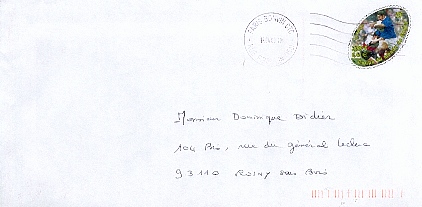 PARIS
Monsieur Dominique Didier
104 Bis, rue du général Leclerc
93110 Rosny sous Bois